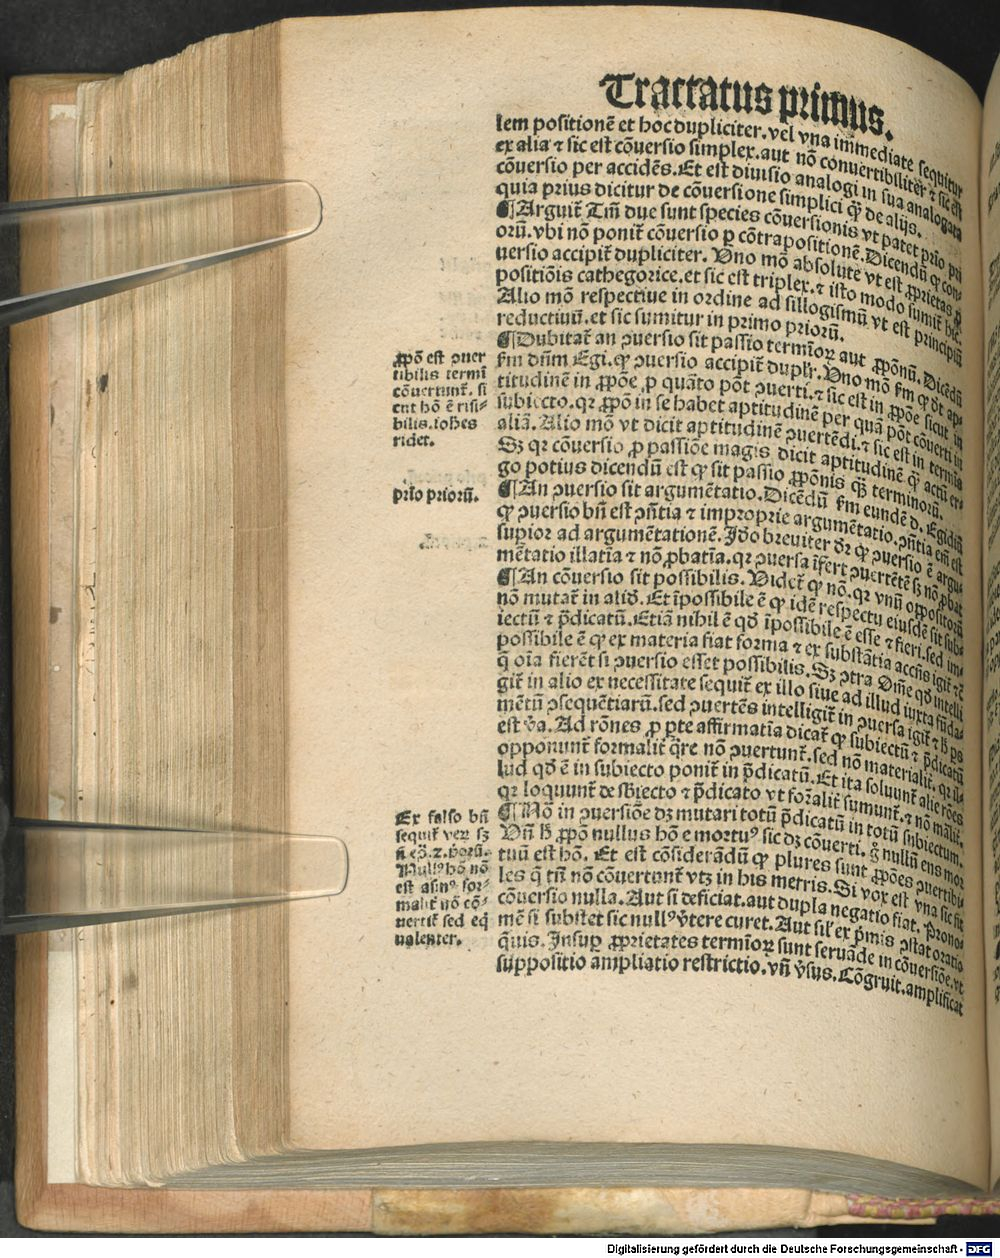 Tractatus primus.
lem positionē et hoc dupliciter. vel vna immediate sequitur
ex alia ⁊ sic est cōuersio simplex. aut nō conuertibiliter ⁊ sic est
cōuersio per accidēs. Et est diuisio analogi in sua analogata
quia prius dicitur de cōuersione simplici q̄ꝫ de alijs.
¶ Arguit̄ Tm̄ due sunt species cōuersionis vt patet prio pri
orū. vbi nō ponit̄ cōuersio ꝑ cōtrapositionē. Dicendū ꝙ con-
uersio accipit̄ dupliciter. Uno mō absolute vt est ꝓprietas ꝓ
positiōis cathegorice. et sic est triplex. ⁊ isto modo sumit̄ hic.
Alio mō respectiue in ordine ad sillogismū vt est principiū
reductiuū. et sic sumitur in primo priorū.
¶ Dubitat̄ an ꝯuersio sit passio termīoꝝ aut ꝓpōnū. Dicēdū
ẜm dn̄m Egi. ꝙ ꝯuersio accipit̄ dupl'r. Uno mō ẜm ꝙ dt̄ ap-
titudinē in ꝓpōe ꝑ quāto pōt ꝯuerti. ⁊ sic est in ꝓpōe sicut in
subiecto. qꝛ ꝓpō in se habet aptitudinē per quā pōt cōuerti in
aliā. Alio mō vt dicit aptitudinē ꝯuertēdi. ⁊ sic est in termīs
Sꝫ qꝛ cōuersio ꝓ passiōe magis dicit aptitudinē q̄ꝫ actū er-
go potius dicendū est ꝙ sit passio ꝓpōnis q̄ꝫ terminorū.
¶ An ꝯuersio sit argumētatio. Dicēdū ẜm eundē d. Egidiū
ꝙ ꝯuersio bn̄ est ꝯn̄tia ⁊ improprie argumētatio. ꝯn̄tia em̄ est
supior ad argumētationē. Jdo breuiter dr̄ ꝙ ꝯuersio ē argu-
mētatio illatīa ⁊ nō ꝓbatīa. qꝛ ꝯuersa īfert ꝯuertētē sꝫ nō ꝓbat
¶ An cōuersio sit possibilis. Videt̄ ꝙ nō. qꝛ vnū oppositorū
nō mutat̄ in aliđ. Et īpossibile ē ꝙ idē respectu eiusdē sit sub-
iectū ⁊ p̄dicatū. Etiā nihil ē qđ īpossibile ē esse ⁊ fieri. sed im-
possibile ē ꝙ ex materia fiat forma ⁊ ex substātia accn̄s igit̄ ⁊c̄
q̄ oīa fierēt si ꝯuersio esset possibilis. Sꝫ ꝯtra Om̄e qđ intelli
git̄ in alio ex necessitate sequit̄ ex illo siue ad illud iuxta fūda-
mētū ꝯsequētiarū. sed ꝯuertēs intelligit̄ in ꝯuersa igit̄ ⁊ h̄ ps
est v̄a. Ad rōnes ꝓ pte affirmatīa dicat̄ ꝙ subiectū ⁊ p̄dicatū
opponunt̄ formalit̄ q̄re nō ꝯuertunt̄. sed nō materialit̄. qꝛ il-
lud qđ ē in subiecto ponit̄ in p̄dicatū. Et ita soluunt̄ alie rōes
qꝛ loquunt̄ de sbiecto ⁊ p̄dicato vt for̄alit̄ sumunt̄. ⁊ nō māliť.
¶ Nō in ꝯuersiōe dꝫ mutari totū p̄dicatū in totū subiectum.
Vn̄ h̄ ꝓpō nullus hō e mortuꝰ sic dꝫ cōuerti. g̊ nullū ens mor
tuū est hō. Et est cōsiderādū ꝙ plures sunt ꝓpōes ꝯuertibi-
les q̄ tn̄ nō cōuertunt̄ vtꝫ in his metris. Si vox est vna sic sit
cōuersio nulla. Aut si deficiat. aut dupla negatio fiat. Prono-
mē si substet sic nullꝰ v̄tere curet. Aut sil' ex p̄mis ꝯstat oratio
q̄uis. Insup ꝓprietates termīoꝝ sunt seruāde in cōuersiōe. vt
suppositio ampliatio restrictio. vn̄ v̓sus. Cōgruit. amplificat
ꝓpō est ꝯuer
tibilis termī
cōuertunt̄. si
cut hō ē risi-
bilis. iohes
ridet.
prīo priorū.
Ex falso bn̄
sequit̄ veꝝ sꝫ
Nullꝰ hō nō
est asinꝰ for-
malit̄ nō cō-
uertit̄ sed eq̄
ualenter.
Digitalisierung gefördert durch die Deutsche Forschungsgemeinschaft - DFG